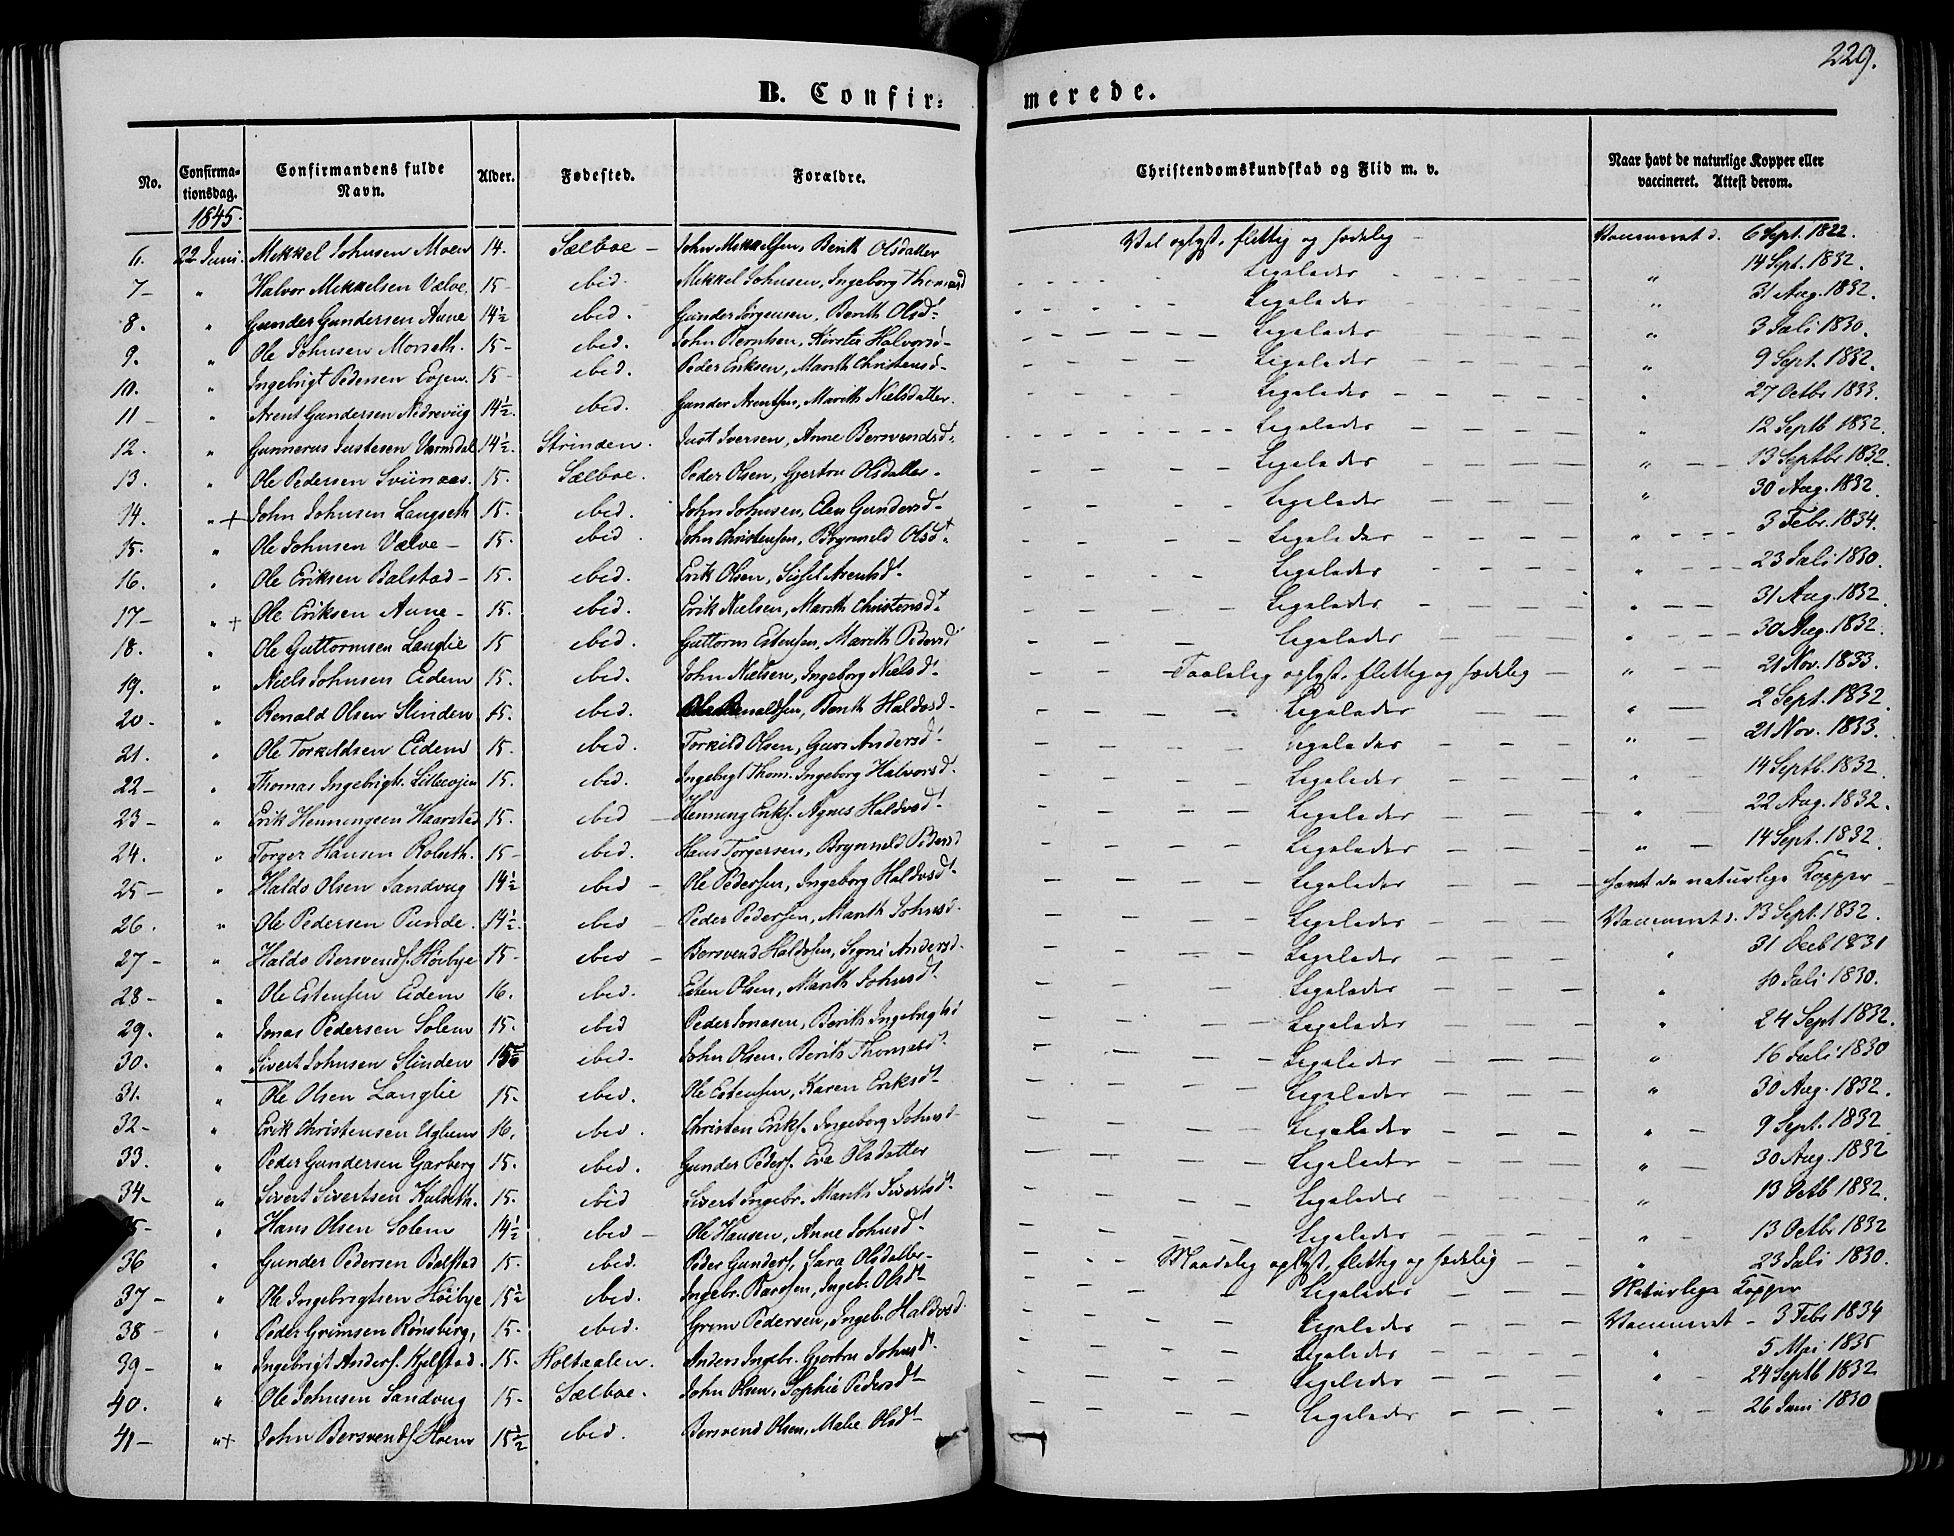 229.
B. Confir= merede.
No. | Confirmationsdag. | Confirmandens fulde Navn. | Alder. | Fødested. | Forældre. | Christendomskundskab og Flid m. v. | Naar havt de naturlige Kopper eller vaccineret. Attest derom.
1845.
6. | 22 Juni. | Mikkel Johnsen Moen | 14. | Sælboe – | John Mikkelsen, Berith Olsdatter | Vel oplyst, flittig og sædelig – | Vaccineret d. 6 Sept. 1822.
7 – | " | Halvor Mikkelsen Vælve. | 15 – | ibid. | Mikkel Johnsen, Ingeborg Thomasd | Ligeledes | " 14 Sept. 1832.
8. | " | Gunder Gundersen Aune | 14½ | ibid. | Gunder Jørgensen, Berith Olsdt | Ligeledes | " 31 Aug. 1832.
9. | " | Ole Johnsen Morseth. | 15 – | ibid. | John Berntsen, Kirstie Halvorsd – | Ligeledes | " 3 Juli 1830.
10. | " | Ingebrigt Pedersen Evjen. | 15 – | ibid. | Peder Eriksen, Marith Christensd – | Ligeledes | " 9 Sept. 1832.
11 – | " | Arent Gundersen Nedreviig | 14½. | ibid. | Gunder Arentsen, Marith Nielsdatter. | Ligeledes | " 27 Octbr 1833.
12. | " | Gunnerus Justesen Varmdal | 14½. | Strinden. | Just Iversen, Anne Bersvendsdt | Ligeledes | " 12 Septb 1832.
13. | " | Ole Pedersen Sviinaas. | 15. | Sælboe. | Peder Olsen, Gjertru Olsdatter – | Ligeledes | " 13 Septbr 1832.
14. | " + | John Johnsen Langseth | 15. | ibid. | John Johnsen, Elen Gundersdt | Ligeledes | " 30 Aug. 1832.
15. | " | Ole Johnsen Vælve – | 15. | ibid. | John Christensen, Brynnild Olsdt | Ligeledes | " 3 Febr. 1834.
16. | " | Ole Eriksen Balstad – | 15. | ibid. | Erik Olsen, Sissel Arentsdt | Ligeledes | " 23 Juli 1830.
17 – | " + | Ole Eriksen Aune – | 15. | ibid. | Erik Nielsen, Marith Christensdt | Ligeledes | " 31 Aug. 1832.
18. | " | Ole Guttormsen Langlie | 15 | ibid. | Guttorm Estensen, Marith Pedersd | Ligeledes | " 30 Aug. 1832.
19. | " | Niels Johnsen Eidem | 15. | ibid. | John Nielsen, Ingeborg Nielsdt | Taalelig oplyst, flittig og sædelig – | " 21 Nov. 1833.
20 – | " | Renald Olsen Slinden | 15. | ibid. | Ole Renaldsen, Berith Haldosd – | Ligeledes | " 2 Sept. 1832
21. | " | Ole Torkildsen Eidem | 15. | ibid. | Torkild Olsen, Guri Andersdt | Ligeledes | " 21 Nov. 1833.
22 – | " | Thomas Ingebrigts. Lilleevjen | 15. | ibid. | Ingebrigt Thom. Ingeborg Halvorsd. | Ligeledes | " 14 Septb. 1832.
23 – | " | Erik Henningsen Haarstad | 15. | ibid – | Henning Eriks. Agnes Haldosdt | Ligeledes | " 22 Aug. 1832.
24. | " | Torger Hansen Rolseth. | 15 – | ibid. | Hans Torgersen, Brynnild Pedersd | Ligeledes | " 14 Sept. 1832.
25 – | " | Haldo Olsen Sandvug | 14½ | ibid – | Ole Pedersen, Ingeborg Haldosdt | Ligeledes | havt de naturlige Kopper
26. | " | Ole Pedersen Punde. | 14½. | ibid – | Peder Pedersen, Marith Johnsd. | Ligeledes | Vaccineret d. 13 Sept. 1832.
27 – | " | Haldo Bersvends. Høibye | 15 – | ibid – | Bersvend Haldosen, Segni Andersd – | Ligeledes | " 31 Octb 1831
28 – | " | Ole Estensen Eidem | 16. | ibid. | Esten Olsen, Marith Johnsdt | Ligeledes | " 10 Juli 1830.
29. | " | Jonas Pedersen Solem | 15. | ibid | Peder Jonasen, Berith Ingebrigtsd | Ligeledes | " 24 Sept 1832.
30. | " | Sivert Johnsen Slinden | 15 | ibid. | John Olsen, Berith Thomasdt | Ligeledes | " 16 Juli 1830
31. | " | Ole Olsen Langlie | 15. | ibid. | Ole Estensen, Karen Eriksdt | Ligeledes | " 30 Aug. 1832.
32 – | " | Erik Christensen Uglum | 16. | ibid. | Christen Eriks. Ingeborg Johnsd – | Ligeledes | " 9 Sept. 1832
33. | " | Peder Gundersen Garberg | 15. | ibid. | Gunder Peders. Eva Olsdatter | Ligeledes | " 30 Aug. 1832
34 – | " | Sivert Sivertsen Kulseth. | 15. | ibid | Sivert Ingebr. Marith Sivertsdt | Ligeledes | " 13 Octb 1832.
35 – | " | Hans Olsen Solem | 14½ | ibid – | Ole Hansen, Anne Johnsdt | Ligeledes | " 13 Octbr 1832
36 | " | Gunder Pedersen Balstad | 15. | ibid. | Peder Gunders, Sara Olsdatter – | Maadelig oplyst, flittig og sædelig | " 23 Juli 1830.
37 – | " | Ole Ingebrigtsen Høibye | 15½ | ibid. | Ingebr. Baardsen, Ingeb. Olsdt | Ligeledes | Naturlige Kopper
38 – | " | Peder Grimsen Rønsberg, | 15. | ibid. | Grim Pedersen, Ingeb. Haldosd. | Ligeledes | Vaccineret – 3 Febr 1834
39 – | " | Ingebrigt Anders. Kjelstad. | 15. | Holtaalen. | Anders Ingebr. Gjertru Johnsdt | Ligeledes | " 5 Mai 1835
40. | " | Ole Johnsen Sandvug | 15 – | Sælboe. | John Olsen, Sophie Pedersdt – | Ligeledes | " 24 Septb 1832
41 – | " + | John Bersvends. Hoem | 15½ | ibid. | Bersvend Olsen, Malie Olsdt – | Ligeledes | " 26 Juni 1830